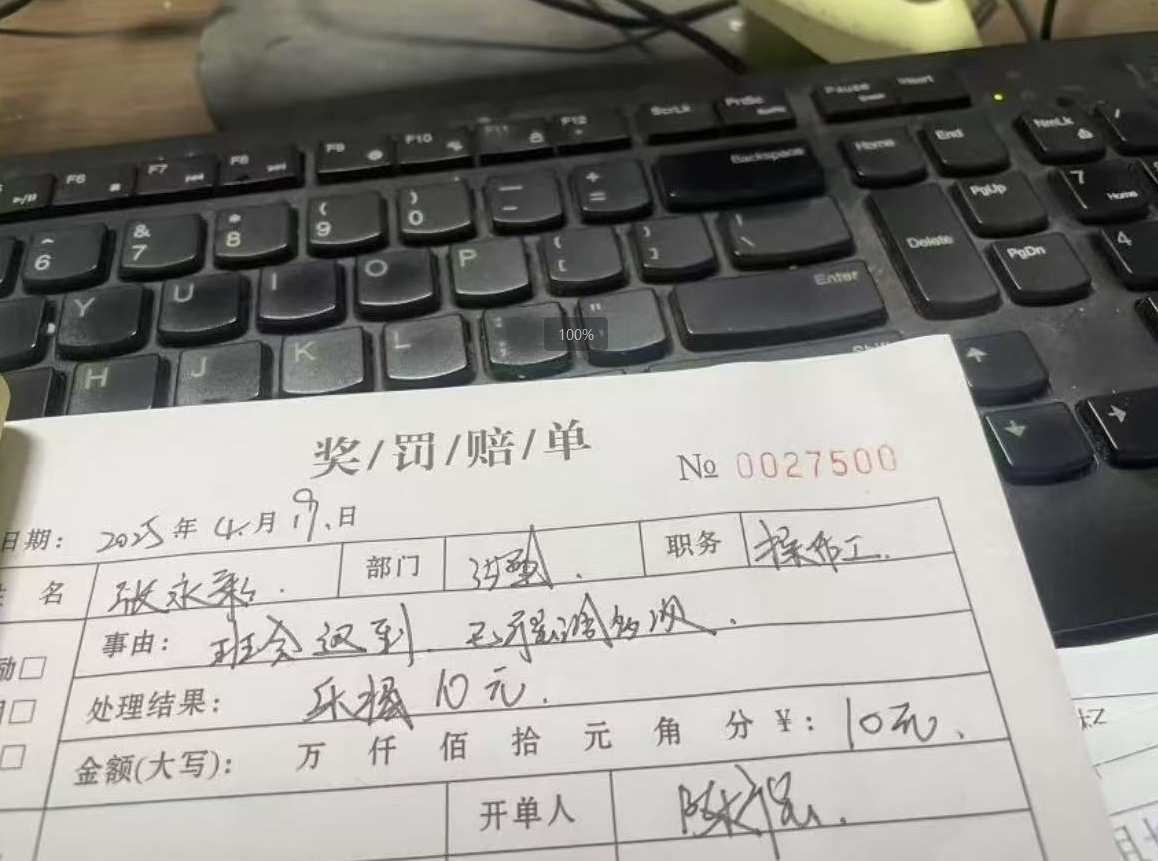 F6
F7
F8
F9
F10
F11
F12
ScrLk
PrtSc
Pause
Insert
^ 6
& 7
* 8
( 9
) 0
— -
+ =
Backspace
Home
End
NmLk
/
Y
U
I
O
P
{ [
} ]
| \
Delete
PgUp
PgDn
7 Home
4
H
J
K
L
: ;
" '
Enter
Shift
100%
奖/罚/赔/单
№ 0027500
日期： 2025年4月19日
名 张永 部门 职务 操作工.
事由： 班会迟到. 已 多次.
处理结果： 乐捐10元.
金额(大写)： 万 仟 佰 拾 元 角 分 ¥：10元.
开单人 陈